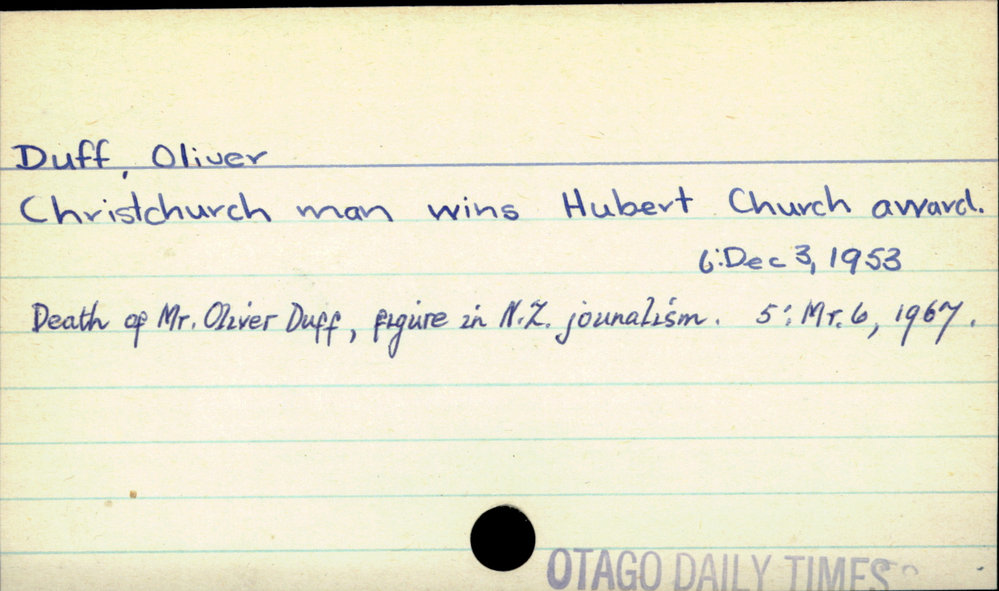 Duff, Oliver
Christchurch man wins Hubert Church award.
6:Dec 3, 1953
Death of Mr. Oliver Duff, figure in N.Z. jounalism. 5: Mr. 6, 1967.
OTAGO DAILY TIMES